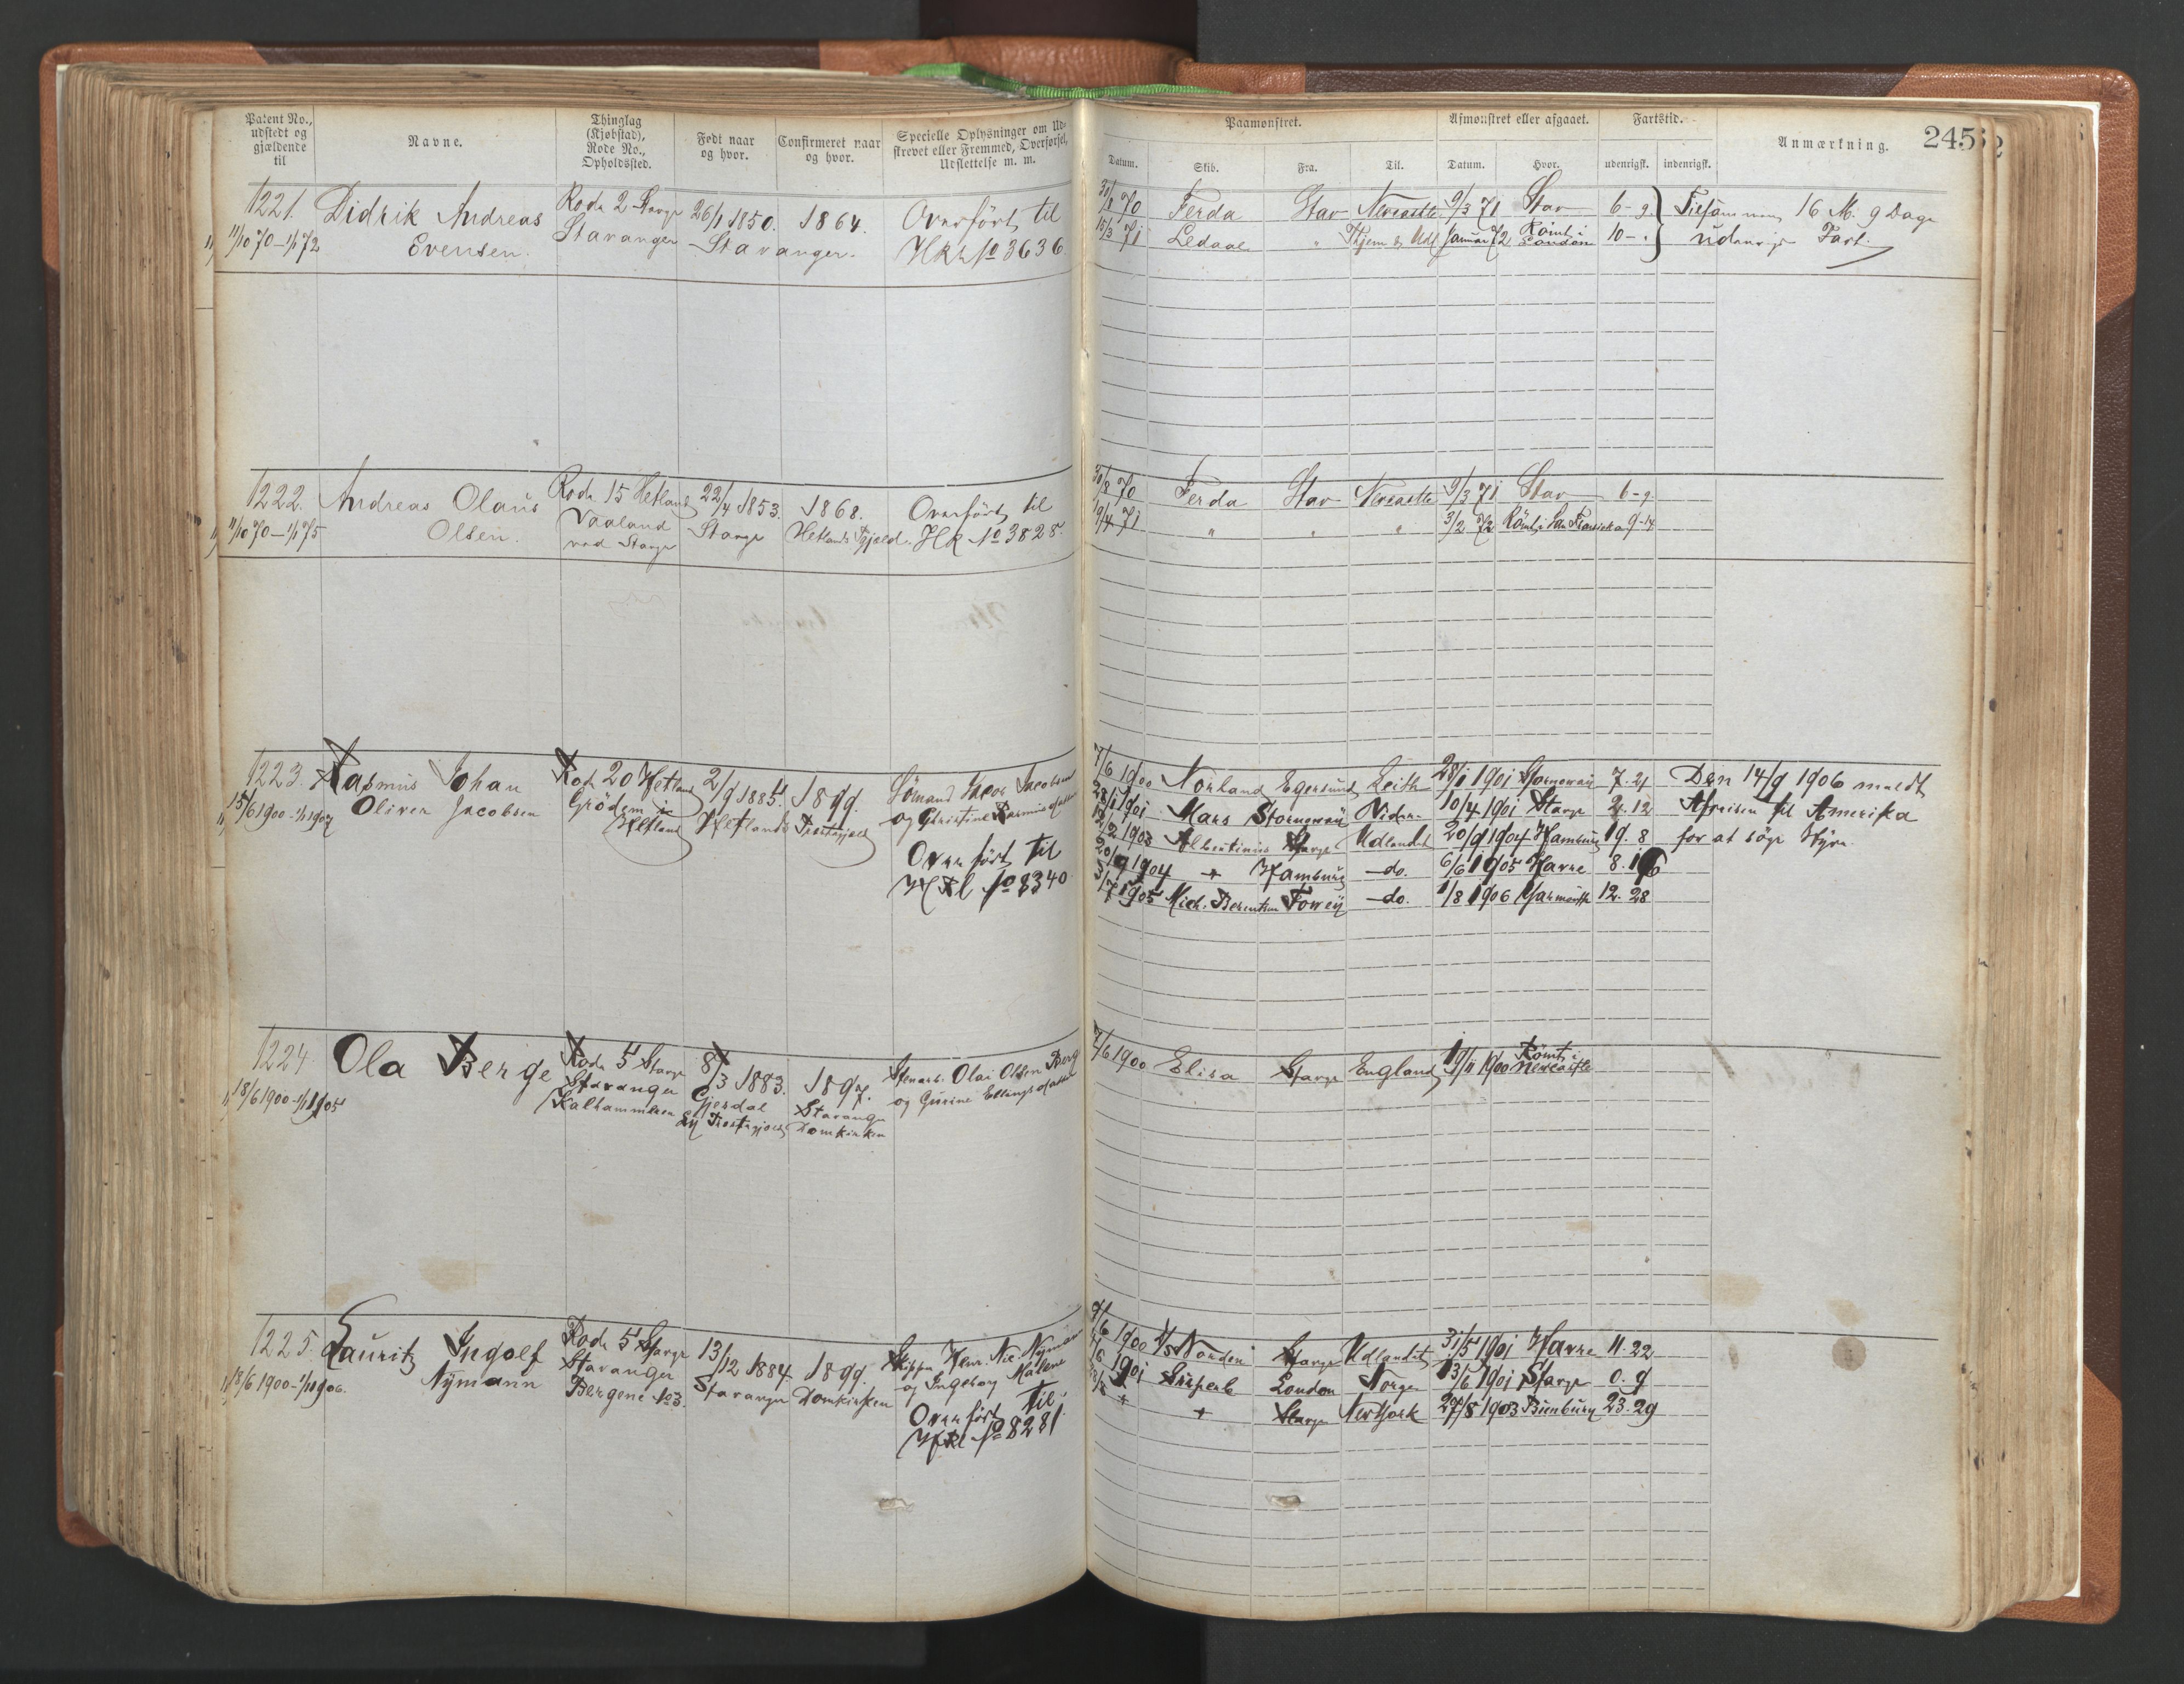 Patent No., udstedt og gjældende til
Navne.
Thinglag (Kjøbstad), Rode No., Opholdssted.
Født naar og hvor.
Confirmeret naar og hvor.
Specielle Oplysninger om Udskrevet eller Fremmed, Overførsel, Udslettelse m. m.
Paamønstret.
Afmønstret eller afgaaet.
Fartstid.
Anmærkning.
245
Datum.
Skib.
Fra.
Til.
Datum.
Hvor.
udenrigsk.
indenrigsk.
1221. Didrik Andreas Rode 2 Stavgr 26/1 1850. 1864. Overført til
11/10 70 - 1/1 72 Evensen. Stavanger Stavanger. Hkr No 3636.
30/8 70 Ferda Stav Newcastle 9/3 71 Stav 6 - 9 Tilsammen 16 M. 9 Dage
15/3 71 Ledaal " Hjem & Udl Januar 72 Römt i London 10 - . udenrigs Fart.
1222. Andreas Olaus Rode 15 Hetland 22/4 1853. 1868. Overført til
11/10 70 - 1/1 75 Olsen. Vaaland Stavgr Hetlands Hk No 3828.
ved Stavgr
30/8 70 Ferda Stav Newcastle 9/3 71 Stav 6 - 9.
19/4 71 " " " 3/2 72 Römt i San Francisko 9 - 14
1223. Rasmus Johan Rode 20 Hetland 2/9 1885. 1899. Sömand Jacob Jacobsen
15/6 1900 - Oliver Jacobsen Grödem i Hetlands Præstegjæld og Christine
Hetland
Overført til
No 8340
7/6 1900 Norland Egersund Leith 28/1 1901 Stornoway 7. 21 Den 14/9 1906 meldt
28/1 1901 Mars Stornoway 10/4 1901 Stavgr 2. 12 Afreisen til Amerika
12/2 1903 Albertinus Stavgr Udlandet 20/9 1904 Hamburg 19. 8 for at søge Hyre.
20/9 1904 + Hamburg - do. 6/6 1905 Havre 8. 16
3/7 1905 Mich. Berentsen Fowey - do. 1/8 1906 Yarmouth 12. 28
1224 Ola Berge Rode 5 Stavgr 8/3 1883. 1897. Olai Olsen Berge
18/6 1900 - 1/1 1905 Stavanger Gjesdal Stavanger og Gurine
Kalhammeren Præstegjæld Domkirken
7/6 1900 Elisa Stavgr England 19/11 1900 Römt i Newcastle
1225. Lauritz Ingolf Rode 5 Stavgr 13/12 1884. 1899. Skipper Nymann
18/6 1900 - 1/1 1906. Nymann Stavanger Stavanger Domkirken og Ingeborg
Bergene No 3.
Overført til
No 8281
9/6 1900 Norden Stavgr Udlandet 31/5 1901 Havre 11. 22
1901 Superb London Norge 13/6 1901 Stavgr 0. 9
+ + Stavgr New York 27/8 1903 Bunbury 23. 29